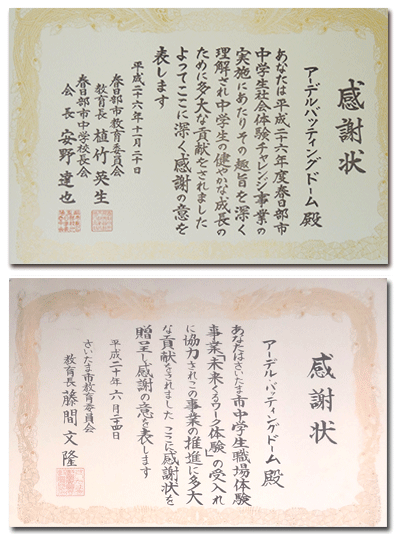 感謝状
アーデルバッティングドーム 殿
あなたは平成二十六年度春日部市
中学生社会体験チャレンジ事業の
実施にあたりその趣旨を深く
理解され中学生の健やかな成長の
ために多大な貢献をされました
よってここに深く感謝の意を
表します
平成二十六年十一月二十日
春日部市教育委員会
教育長 植竹英生
春日部市中学校長会
会長 安野達也
感謝状
アーデル・バッティングドーム 殿
あなたはさいたま市中学生職場体験
事業「未来くるワーク体験」の受入れ
に協力されこの事業の推進に多大
な貢献をされました ここに感謝状を
贈呈し感謝の意を表します
平成二十年六月二十四日
さいたま市教育委員会
教育長 藤間文隆